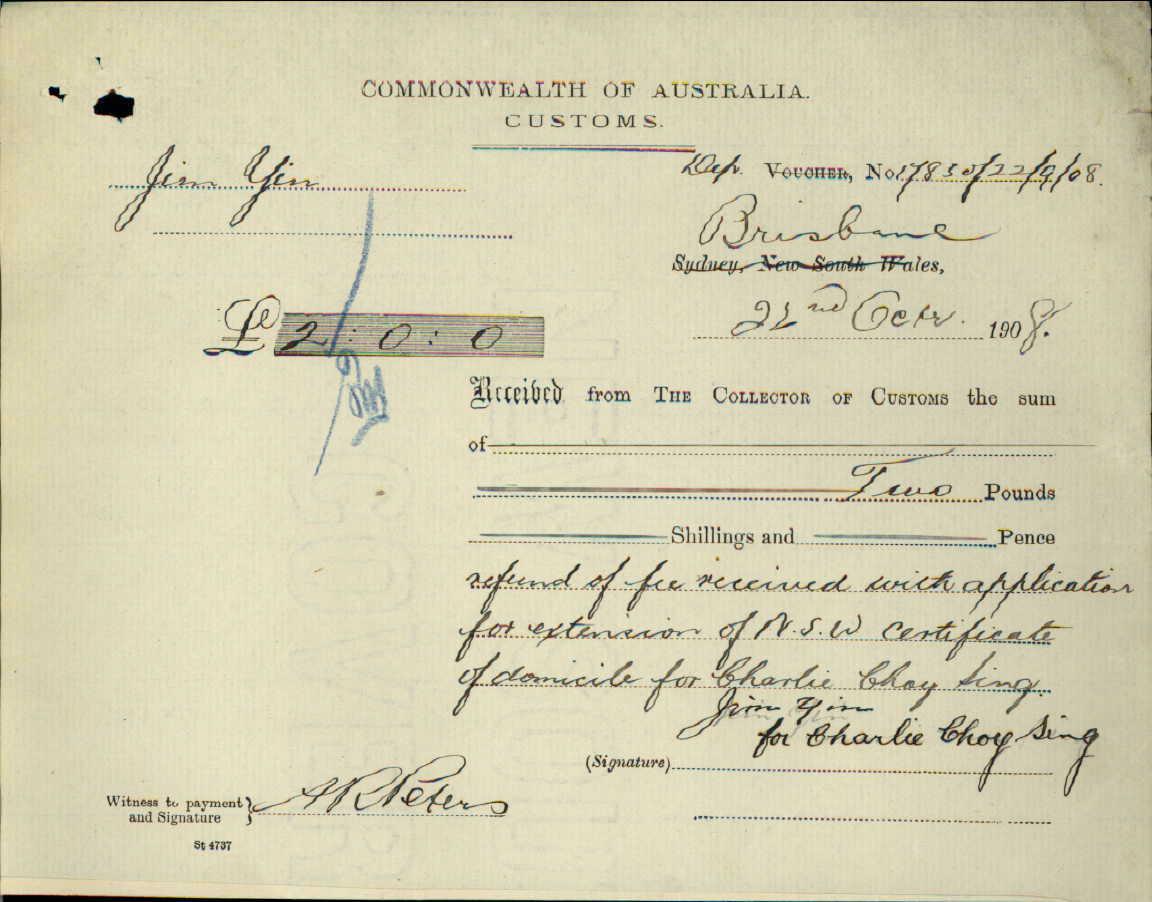 COMMONWEALTH OF AUSTRALIA.
CUSTOMS.
Jim Yin
Dep. VOUCHER, No. 17830/22/9/08.
Brisbane
Sydney, New South Wales,
£ 2 : 0 : 0
22nd Octr. 1908.
Received from THE COLLECTOR OF CUSTOMS the sum
of
Two Pounds
Shillings and Pence
refund of fee received with application
for extension of N.S.W certificate
of domicile for Charlie Choy Sing.
Jim Yin
for Charlie Choy Sing
(Signature)
Witness to payment
and Signature
A R Peters
St 4737